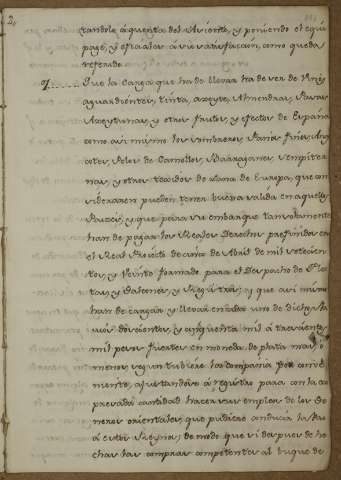 2.
randole, á quenta del Asiento, y poniendo el equi
page, y oficiales á su satisfacion, como queda
referido.
7. Que la Carga que ha de llevar ha de ser de Vinos
aguardientes, tinta, azeyte, Almendras, Pasas,
Azeytunas, y otros frutos, y efectos de España
como asi mismo los sombreros, Paños finos,
cotes, Pelos de Camellos, Barraganes, sempiter
nas, y otros texidos de lana de Europa, que con
sideraren pueden tener buena salida en aquellos
Paises, y que para su embarque tan solamente
han de pagar los Reales Derechos prefinidos en
el Real Proiecto de cinco de Abril de mil setecien
tos, y veinte formado para el Despacho de Flo
tas, y Galeones, y Registros; y que asi mismo
han de cargar y llevar en cada uno de dichos Na
vios doscientos, y cinquenta mil á trescientos
mil pesos fuertes en moneda de plata mas, ó
menos segun tubiere la compañia por conve
niente, ajustandose á registro para con la ex
presada cantidad hacer sus empleos de los Ge
neros orientales, que pudiere conducir la
á estos Reynos; de modo que si despues de he
chas las compras competentes al buque de